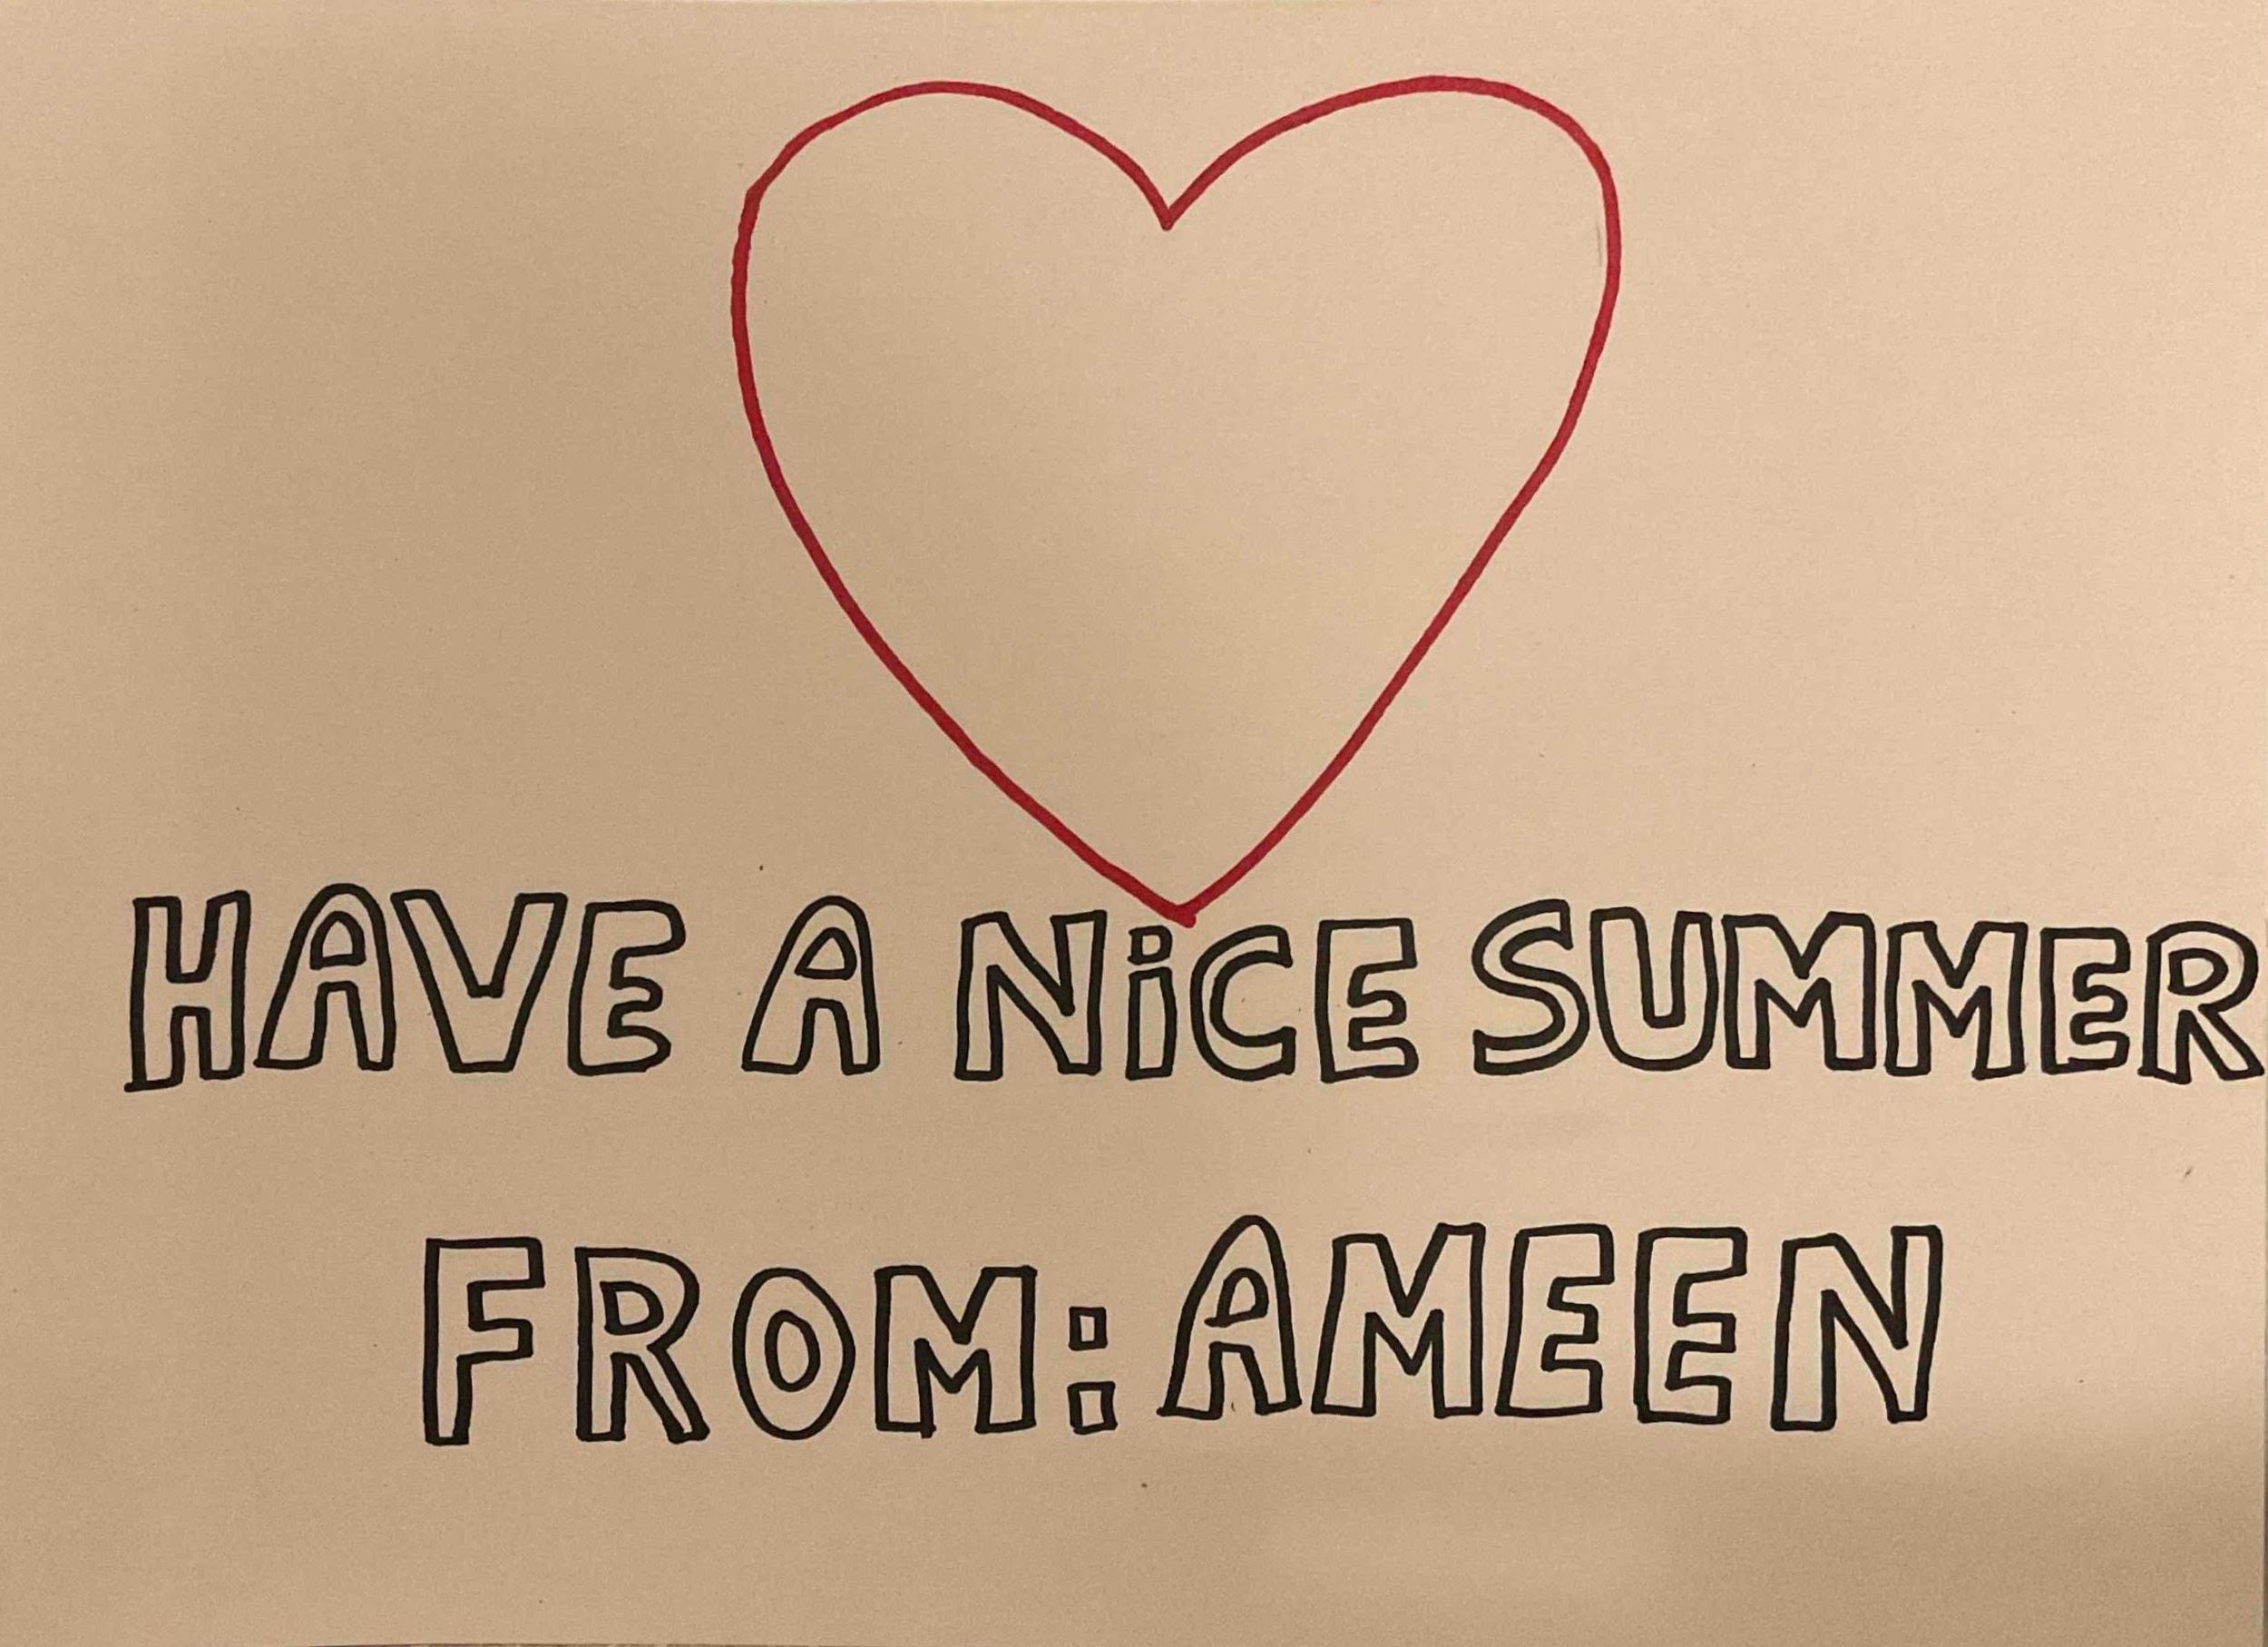 HAVE A NiCE SUMMER
FROM: AMEEN